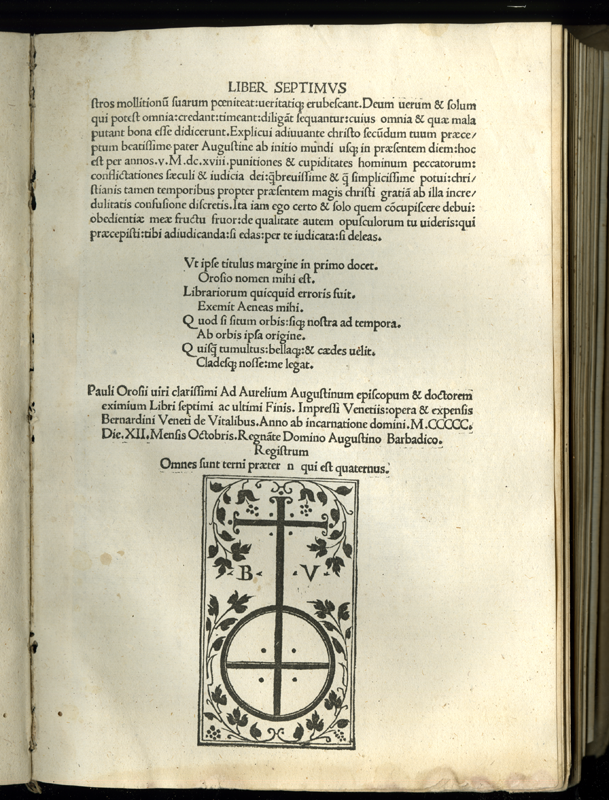 LIBER SEPTIMVS
stros mollitionū suarum pœniteat:ueritatiq; erubescant.Deum uerum & solum
qui potest omnia:credant:timeant:diligāt sequantur:cuius omnia & quæ mala
putant bona esse didicerunt.Explicui adiuuante christo secūdum tuum præce/
ptum beatissime pater Augustine ab initio mundi usq; in præsentem diem:hoc
est per annos.v.M.dc.xviii.punitiones & cupiditates hominum peccatorum:
conflictationes sæculi & iudicia dei:q̄breuissime & q̄ simplicissime potui:chri/
stianis tamen temporibus propter præsentem magis christi gratiā ab illa incre/
dulitatis confusione discretis.Ita iam ego certo & solo quem cōcupiscere debui:
obedientiæ meæ fructu fruor:de qualitate autem opusculorum tu uideris:qui
præcepisti:tibi adiudicanda:si edas:per te iudicata:si deleas.
Vt ipse titulus margine in primo docet.
Orosio nomen mihi est.
Librariorum quicquid erroris fuit.
Exemit Aeneas mihi.
Quod si situm orbis:siq; nostra ad tempora.
Ab orbis ipsa origine.
Quisq̃ tumultus:bellaq;:& cædes uelit.
Cladesq; nosse:me legat.
Pauli Orosii uiri clarissimi Ad Aurelium Augustinum episcopum & doctorem
eximium Libri septimi ac ultimi Finis. Impressi Venetiis:opera & expensis
Bernardini Veneti de Vitalibus.Anno ab incarnatione domini.M.CCCCC.
Die.XII.Mensis Octobris.Regnāte Domino Augustino Barbadico.
Registrum
Omnes sunt terni præter n qui est quaternus.
B V